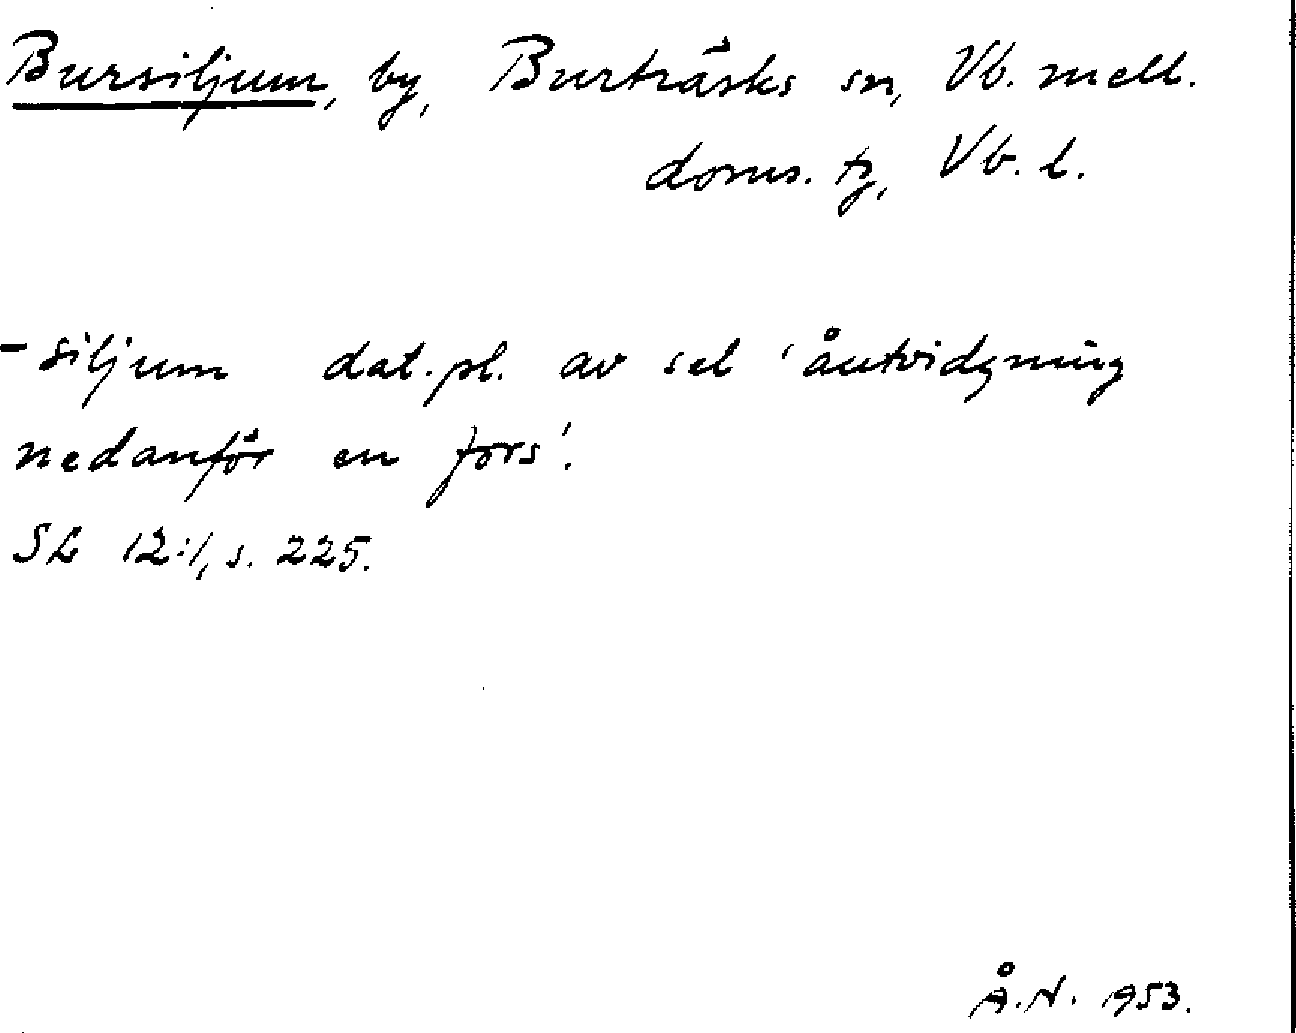 Bursiljum, by, Burträsks sn, Vb. mell.
doms. tg, Vb. l.
-siljum dat. pl. av sel 'åutvidgning
nedanför en fors'.
SL 12:1, s. 225.
Å.N. 1953.